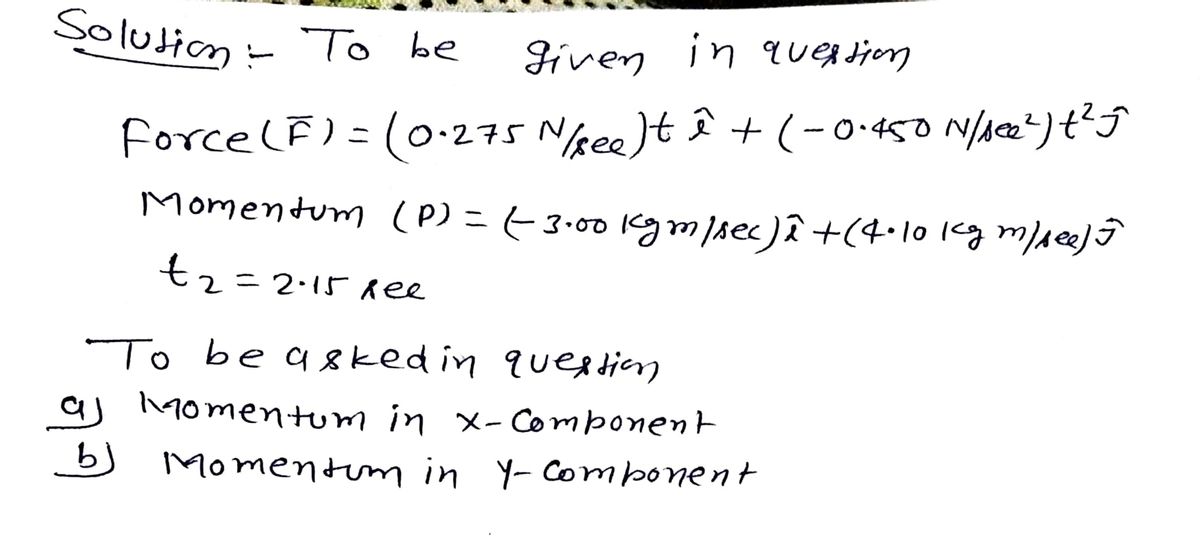 Solution:- To be given in question
Force(F̄) = (0.275 N/sec)t î + (-0.450 N/sec²)t² ĵ
Momentum (P) = (-3.00 Kgm/sec)î + (4.10 kg m/sec)ĵ
t₂ = 2.15 sec
To be asked in question
a) Momentum in x-Component
b) Momentum in Y-Component